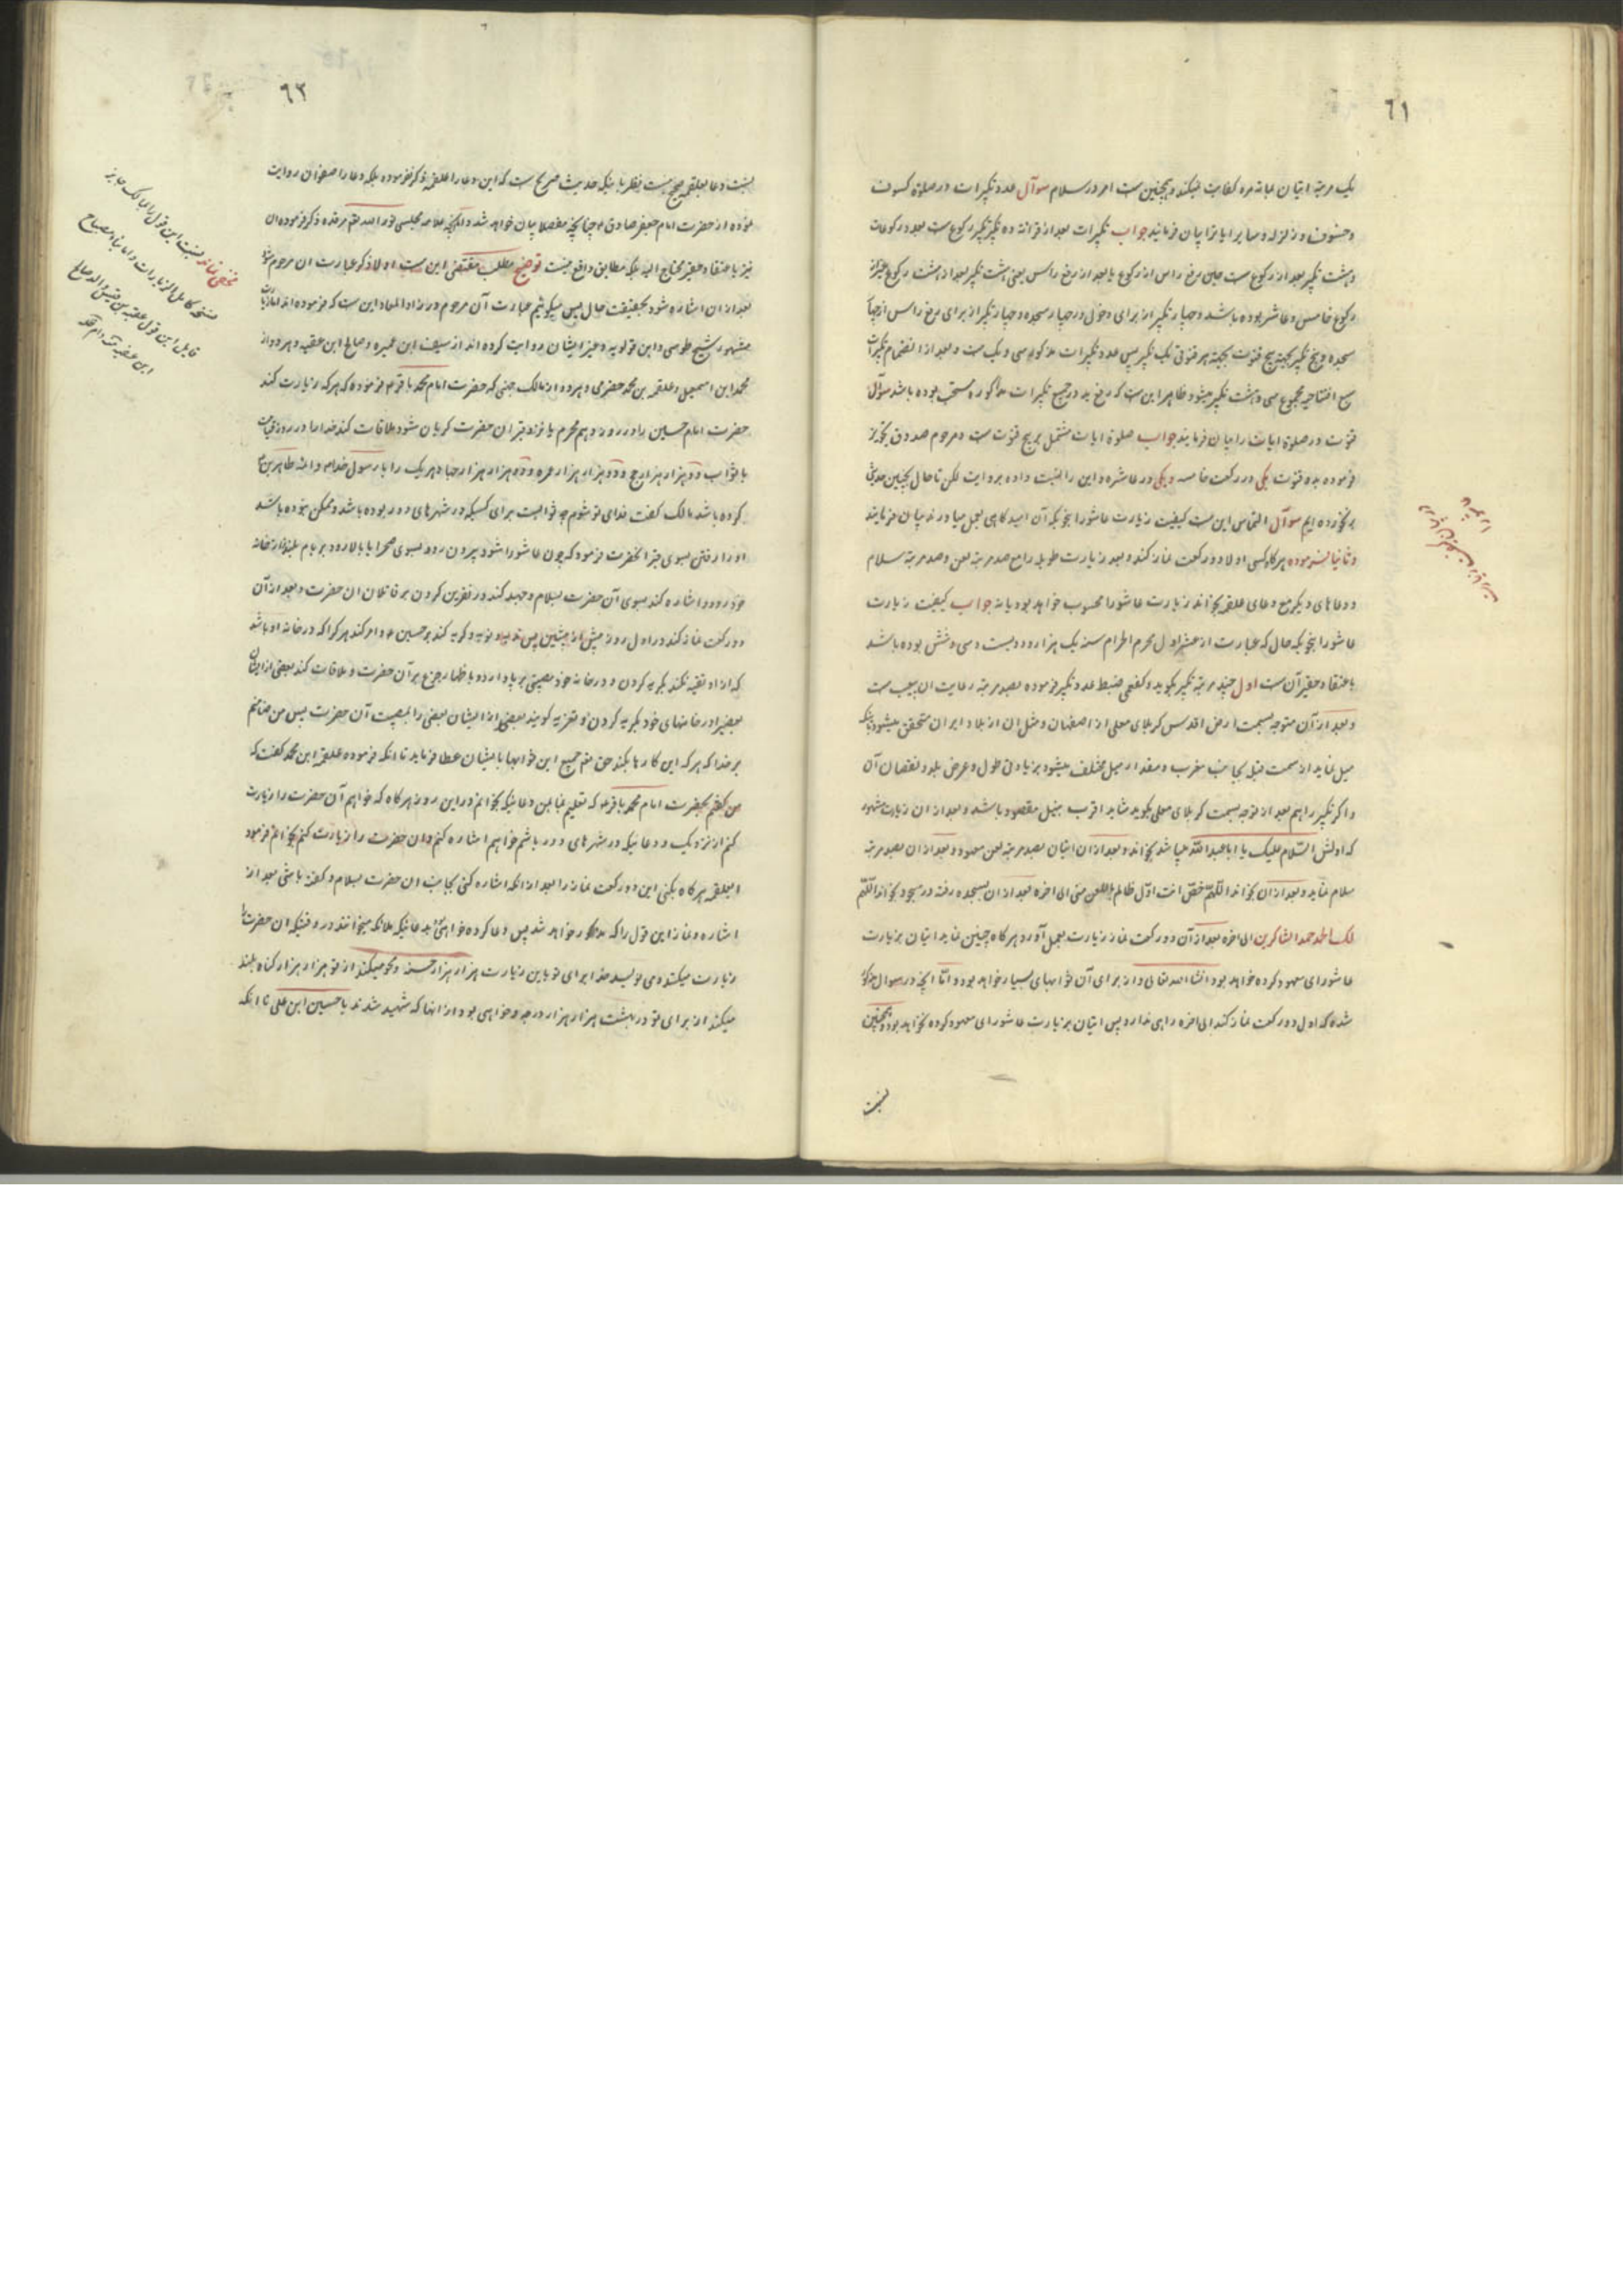 ٦١
یک مرتبه اتیان علیاته مره کفایت میکند و همچنین ست امر در سلام سوآل عدد تکبیرات در صلوة کسوف
و خسوف و زلزله و سایر ایات را بیان فرمایند جواب تکبیرات بعد از قرائة ده تکبیر تکبیر رکوع ست بعدد رکوعات
و هشت تکبیر بعد از رکوع ست حین رفع راس از رکوع یا بعد از رفع راس یعنی هشت تکبیر بعد از هشت رکوع غیر از
رکوع خامس و عاشر بوده باشد و چهار تکبیر از برای دخول در چهار سجده و چهار تکبیر از برای رفع راس از چهار
سجده و پنج تکبیر بجهة پنج قنوت بجهة هر قنوتی یک تکبیر پس عدد تکبیرات مذکوره سی و یک ست و بعد از انضمام تکبیرات
سبع افتتاحیه مجموع سی و هشت تکبیر میشود ظاهر این ست که رفع ید در جمیع تکبیرات مذکوره مستحب بوده باشد سوآل
قنوت در صلوة ایات را بیان فرمایند جواب صلوة ایات مشتمل بر پنج قنوت ست و مرحوم صدوق تجویز
فرموده بدو قنوت یکی در رکعت خامسه و یکی در عاشره و این را نسبت داده بروایت لکن تا حال بچنین حدیثی
برنخورده ایم سوآل التماس این ست کیفیت زیارت عاشورا بنحویکه آن امیدگاهی بعمل میاورند بیان فرمایند
و ثانیا فرموده هرگاه کسی اولا دو رکعت نماز کند و بعد زیارت طویله را مع صد مرتبه لعن و صد مرتبه سلام
و دعاهای دیگر مع دعای علقمه بخواند زیارت عاشورا محسوب خواهد بود یا نه جواب کیفیت زیارت
عاشورا بنحویکه حال که عبارت از عشر اول محرم الحرام سنه یک هزار و دویست و سی و شش بوده باشد
باعتقاد حقیر آن ست اول چند مرتبه تکبیر بگوید و کفعمی ضبط عدد تکبیر فرموده بصد مرتبه رعایت ان بیعیب ست
و بعد از آن متوجه بسمت ارض اقدس کربلای معلی از اصفهان و مثل ان از بلاد ایران متحقق میشود باینکه
میل نماید از سمت قبله بجانب مغرب و مقدار میل مختلف میشود بزیادتی طول و عرض بلد و نقصان آن
و اگر تکبیر را هم بعد از توجه بسمت کربلای معلی بگوید شاید اقرب بنیل مقصود باشد و بعد از ان زیارت مشهور
که اولش السّلام علیک یا اباعبدالله میباشد بخواند و بعد از ان اتیان بصد مرتبه لعن معهود و بعد از ان بصد مرتبه
سلام نماید و بعد از ان بخواند اللّهمّ خصّ انت اوّل ظالم باللعن منی الی اخره بعد از ان بسجده رفته در سجود بخواند اللّهمّ
لک الحمد حمد الشاکرین الی اخره بعد از آن دو رکعت نماز زیارت بعمل آورد هرگاه چنین نماید اتیان بزیارت
عاشورای معهود کرده خواهد بود انشاءالله تعالی و از برای آن ثوابهای بسیار خواهد بود و امّا آنچه در سوال مذکور
شده که اول دو رکعت نماز کند الی اخره راهی ندارد پس اتیان بزیارت عاشورای معهود کرده نخواهد بود و همچنین
نسبت
٦٢
نسبت دعا بعلقمه صحیح نیست نظر باینکه حدیث صریح ست که این دعا را علقمه ذکر نفرموده بلکه دعا را صفوان روایت
نموده از حضرت امام جعفر صادق ع چنانچه مفصلا بیان خواهد شد و انچه علامه مجلسی نور الله مرقده ذکر فرموده ان
نیز باعتقاد حقیر محتاج الیه بلکه مطابق واقع نیست توضیح مطلب مقتضی این ست اولا ذکر عبارت ان مرحوم شود
بعد از ان اشاره شود بحقیقت حال پس میگوئیم عبارت آن مرحوم در زادالمعاد این ست که فرموده اند اما زیارت
مشهور شیخ طوسی و ابن قولویه و غیر ایشان روایت کرده اند از سیف ابن عمیره و صالح ابن عقبه و هر دو از
محمد ابن اسمعیل و علقمه بن محمد حضرمی و هر دو از مالک جهنی که حضرت امام محمد باقر ع فرموده که هر که زیارت کند
حضرت امام حسین را در روز دهم محرم یا نزد قبر ان حضرت گریان شود ملاقات کند خدا را در روز قیامت
با ثواب دو هزار هزار حج و دو هزار هزار عمره و دو هزار هزار جهاد که هر یک را با رسول خدا ص و ائمه طاهرین ع
کرده باشد مالک گفت فدای تو شوم چه ثوابست برای کسیکه در شهرهای دور بوده باشد و ممکن نبوده باشد
او را رفتن بسوی قبر انحضرت فرمود که چون عاشورا شود بیرون رود بسوی صحرا یا بالا رود بر بام بلند از خانه
خود رود و اشاره کند بسوی آن حضرت بسلام و جهد کند در نفرین کردن بر قاتلان ان حضرت و بعد از آن
دو رکعت نماز کند در اول روز پیش از پیشین پس ندبه و نوحه و گریه کند بر حسین ع و امر کند هر که را که در خانه او باشد
که از او تقیه نکند بگریه کردن و در خانه خود مصیبتی برپا دارد و باظهار جزع بر آن حضرت و ملاقات کند بعضی از ایشان
بعضی را در خانهای خود بگریه کردن و تعزیه گویند بعضی از ایشان بعضی را بمصیبت آن حضرت پس من ضامنم
بر خدا که هر که این کارها بکند حق تعم جمیع این ثوابها بایشان عطا فرماید تا انکه فرموده علقمه ابن محمد گفت که
من گفتم بحضرت امام محمد باقر ع که تعلیم نما بمن دعائیکه بخوانم در این روز هرگاه که خواهم آن حضرت را زیارت
کنم از نزدیک و دعائیکه در شهرهای دور باشم خواهم اشاره کنم و ان حضرت را زیارت کنم بخوانم فرمود
ایعلقمه هرگاه بکنی این دو رکعت نماز را بعد از انکه اشاره کنی بجانب ان حضرت بسلام و گفته باشی بعد از
اشاره و نماز این قول را که مذکور خواهد شد پس دعا کرده خواهی بود بدعائیکه ملائکه میخوانند در وقتیکه ان حضرت را
زیارت میکنند و می نویسد خدا برای تو باین زیارت هزار هزار حسنه و محو میکند از تو هزار هزار گناه بلند
میکند از برای تو در بهشت هزار هزار درجه و خواهی بود از انها که شهید شدند با حسین ابن علی تا انکه
مخفی نماند نسبت این قول را بمالک بنابر
نسخه کامل الزیارات و اما بنابر مصباح
قایل این قول عقبه بن قیس والد صالح
ابن عقبه